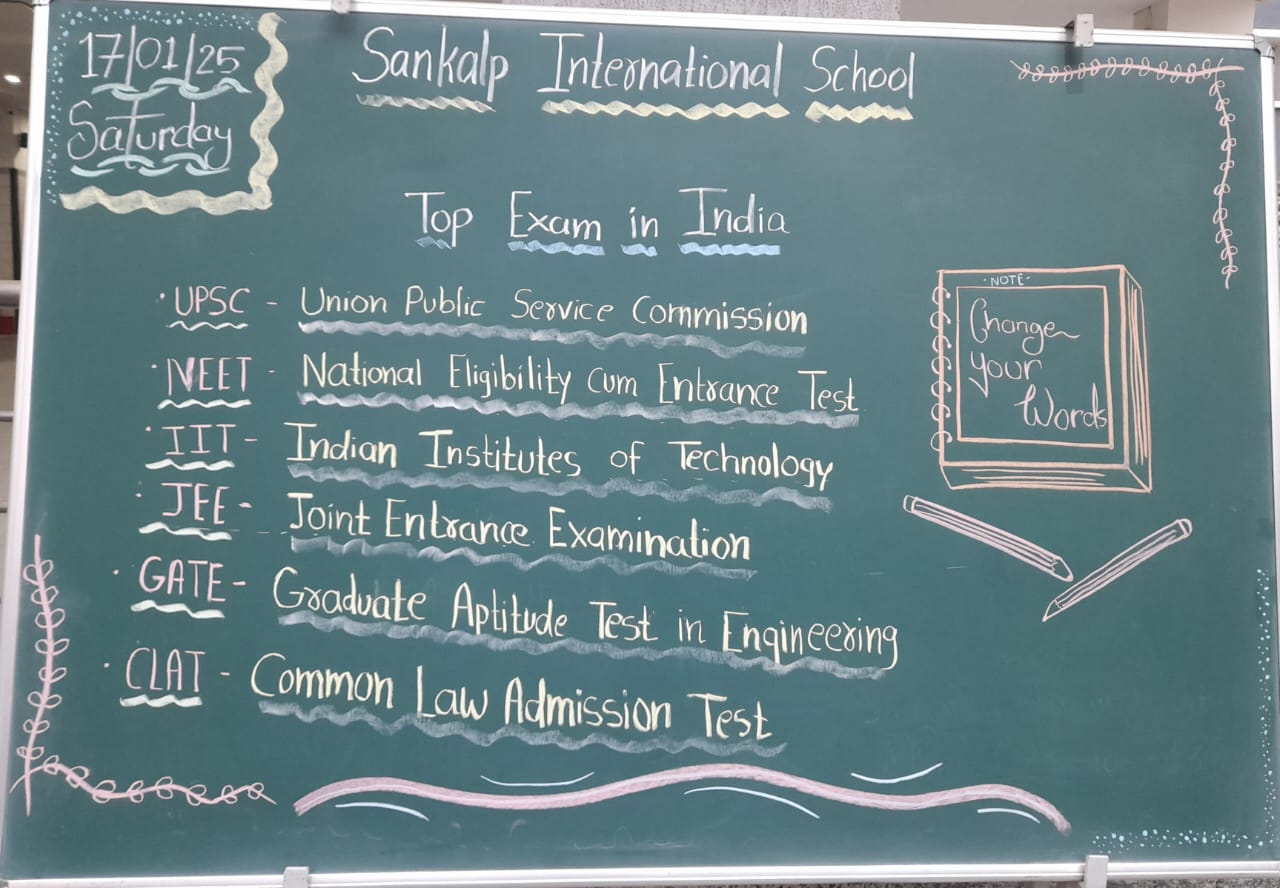 17/01/25
Saturday
Sankalp International School
Top Exam in India
· UPSC - Union Public Service Commission
· NEET - National Eligibility cum Entrance Test
· IIT - Indian Institutes of Technology
· JEE - Joint Entrance Examination
· GATE - Graduate Aptitude Test in Engineering
· CLAT - Common Law Admission Test
· NOTE ·
Change
your
Words